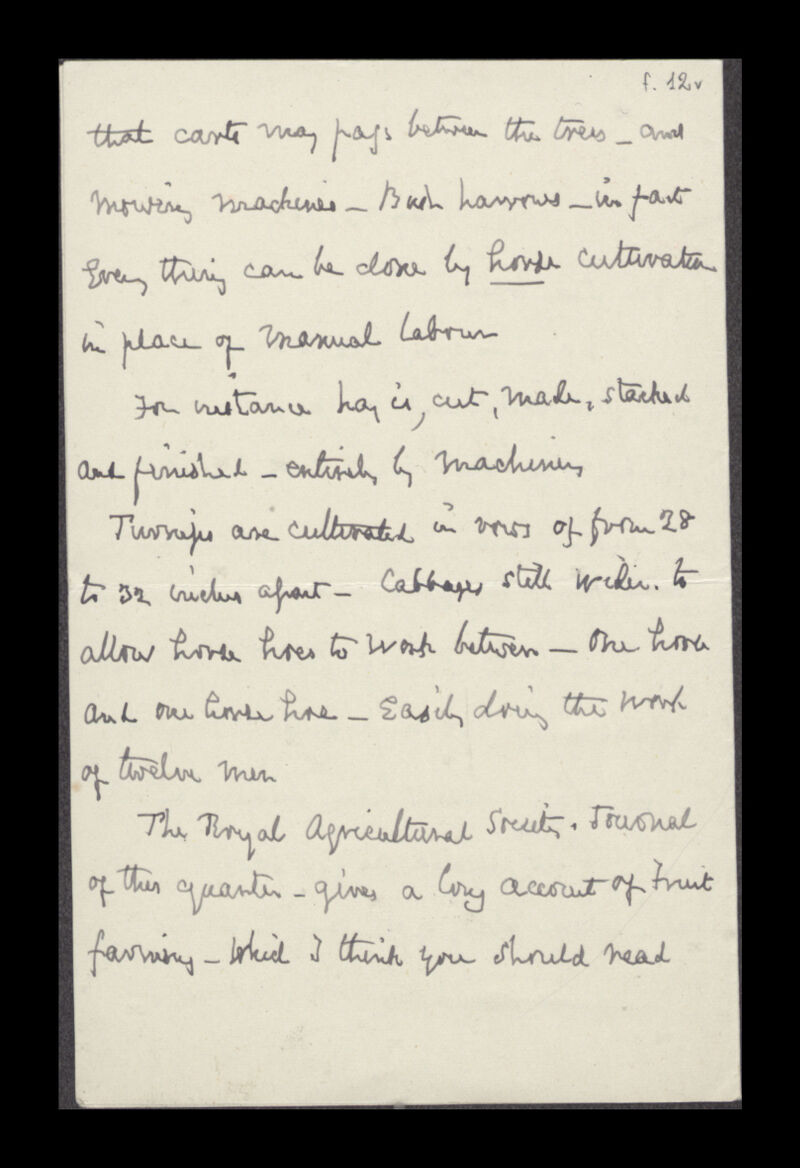 f. 12v
that carts may pass between the trees - and
Mowing Machines - Bush harrows - in fact
Every thing can be done by horse cultivation
in place of manual labour
For instance hay is, cut, made, stacked
and finished - entirely by Machinery
Turnips are cultivated in rows of from 28
to 32 inches apart - Cabbages still wider. to
allow horse hoes to work between - One horse
and one horse hoe - Easily doing the work
of twelve men
The Royal Agricultural Society. Journal
of this quarter - gives a long account of Fruit
farming - which I think you should read